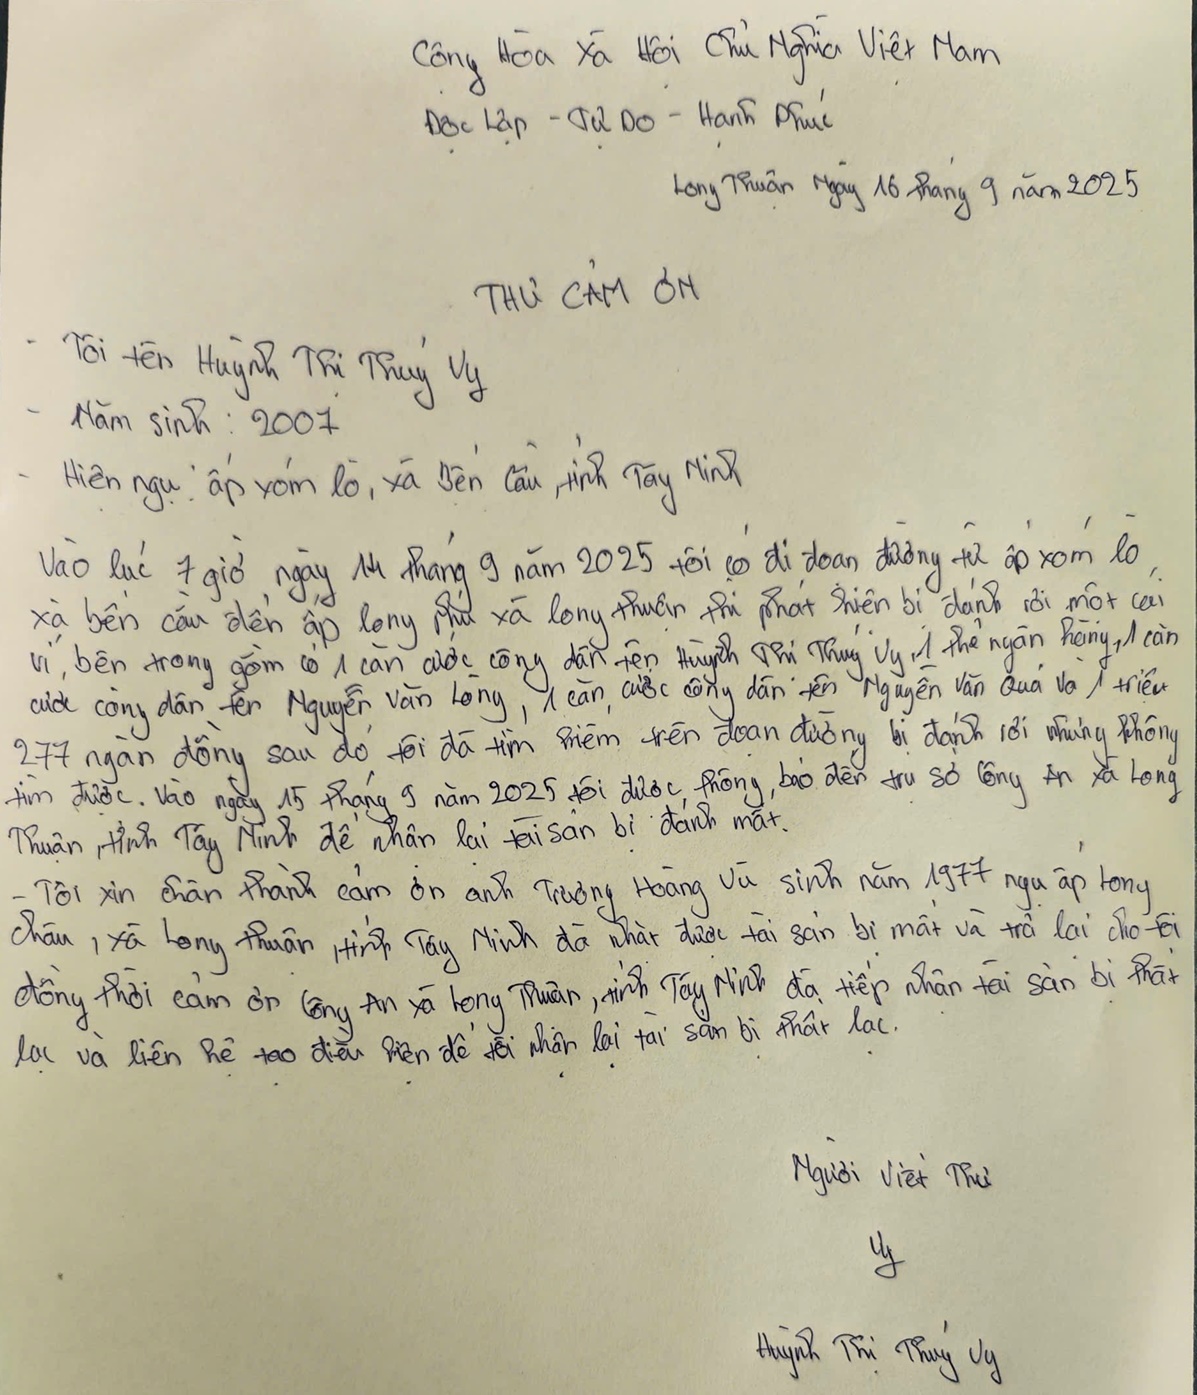 Cộng Hòa Xã Hội Chủ Nghĩa Việt Nam
Độc Lập - Tự Do - Hạnh Phúc
Long Thuận Ngày 16 tháng 9 năm 2025
THƯ CẢM ƠN
- Tôi tên Huỳnh Thị Thuý Vy
- Năm sinh : 2007
- Hiện ngụ : ấp xóm lò, xã Bến Cầu, tỉnh Tây Ninh
Vào lúc 7 giờ ngày 14 tháng 9 năm 2025 tôi có đi đoạn đường từ ấp xóm lò,
xã bến cầu đến ấp long phú xã long thuận thì phát hiện bị đánh rơi một cái
ví, bên trong gồm có 1 căn cước công dân tên Huỳnh Thị Thuý Vy, 1 thẻ ngân hàng, 1 căn
cước công dân tên Nguyễn Văn Lòng, 1 căn cước công dân tên Nguyễn Văn Quá và 1 triệu
277 ngàn đồng sau đó tôi đã tìm kiếm trên đoạn đường bị đánh rơi nhưng không
tìm được. Vào ngày 15 tháng 9 năm 2025 tôi được thông báo đến trụ sở Công An xã Long
Thuận, tỉnh Tây Ninh để nhận lại tài sản bị đánh mất.
- Tôi xin chân thành cảm ơn anh Trương Hoàng Vũ sinh năm 1977 ngụ ấp Long
Châu, xã Long Thuận, tỉnh Tây Ninh đã nhặt được tài sản bị mất và trả lại cho tôi
đồng thời cảm ơn Công An xã Long Thuận, tỉnh Tây Ninh đã tiếp nhận tài sản bị thất
lạc và liên hệ tạo điều kiện để tôi nhận lại tài sản bị thất lạc.
Người Viết Thư
Vy
Huỳnh Thị Thuý Vy